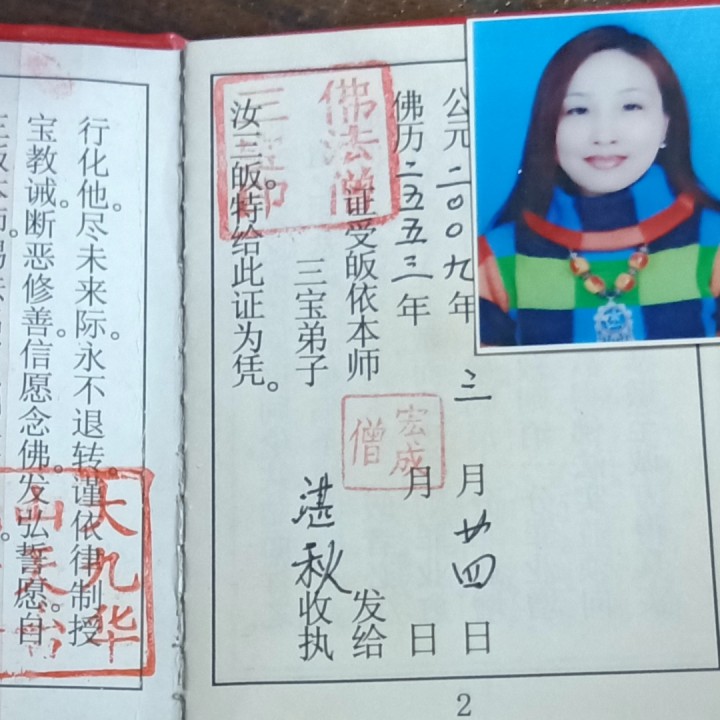 宝教诫。断恶修善。信愿念佛。发弘誓愿。自
行化他。尽未来际。永不退转。谨依律制授
汝三皈。特给此证为凭。
三宝弟子 湛秋 收执
证受皈依本师 发给
佛历二五五三年 月 日
公元二〇〇九年三月廿四日
佛法僧
三宝印
宏成
僧
大九华
2